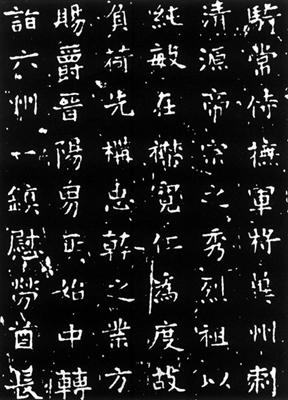 騎常侍撫軍将冀州刺
清源帝宗之秀烈祖以
純敏在襟寬仁為度故
負荷先構惠幹之業方
賜爵晉陽男正始中轉
詣六州一鎮慰勞酋長